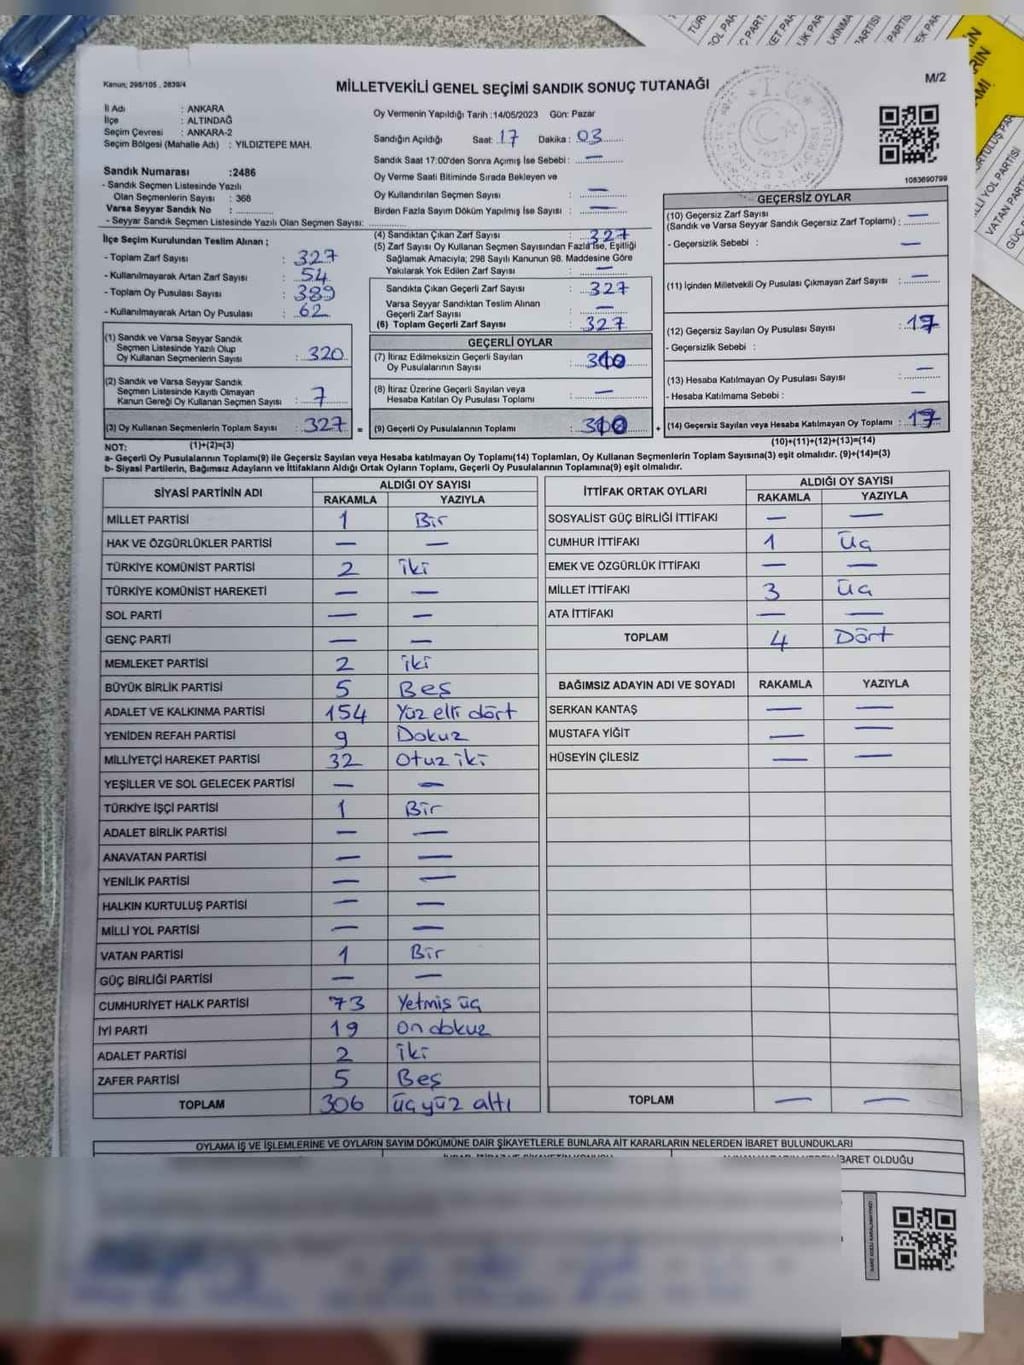 Kanun; 298/105 , 2839/4
MİLLETVEKİLİ GENEL SEÇİMİ SANDIK SONUÇ TUTANAĞI
M/2
İl Adı : ANKARA
İlçe : ALTINDAĞ
Seçim Çevresi : ANKARA-2
Seçim Bölgesi (Mahalle Adı) : YILDIZTEPE MAH.
Oy Vermenin Yapıldığı Tarih :14/05/2023 Gün: Pazar
Sandığın Açıldığı Saat: 17 Dakika : 03
Sandık Saat 17:00'den Sonra Açımış İse Sebebi : —
Oy Verme Saati Bitiminde Sırada Bekleyen ve
Oy Kullandırılan Seçmen Sayısı : —
Birden Fazla Sayım Döküm Yapılmış İse Sayısı : —
1083690799
Sandık Numarası :2486
- Sandık Seçmen Listesinde Yazılı
Olan Seçmenlerin Sayısı : 368
Varsa Seyyar Sandık No :
- Seyyar Sandık Seçmen Listesinde Yazılı Olan Seçmen Sayısı:
İlçe Seçim Kurulundan Teslim Alınan ;
- Toplam Zarf Sayısı : 327
- Kullanılmayarak Artan Zarf Sayısı : 54
- Toplam Oy Pusulası Sayısı : 389
- Kullanılmayarak Artan Oy Pusulası : 62
(1) Sandık ve Varsa Seyyar Sandık
Seçmen Listesinde Yazılı Olup
Oy Kullanan Seçmenlerin Sayısı : 320
(2) Sandık ve Varsa Seyyar Sandık
Seçmen Listesinde Kayıtlı Olmayan
Kanun Gereği Oy Kullanan Seçmen Sayısı : 7
(3) Oy Kullanan Seçmenlerin Toplam Sayısı : 327
(1)+(2)=(3)
(4) Sandıktan Çıkan Zarf Sayısı : 327
(5) Zarf Sayısı Oy Kullanan Seçmen Sayısından Fazla İse, Eşitliği
Sağlamak Amacıyla; 298 Sayılı Kanunun 98. Maddesine Göre
Yakılarak Yok Edilen Zarf Sayısı : —
Sandıkta Çıkan Geçerli Zarf Sayısı : 327
Varsa Seyyar Sandıktan Teslim Alınan
Geçerli Zarf Sayısı : —
(6) Toplam Geçerli Zarf Sayısı : 327
GEÇERLİ OYLAR
(7) İtiraz Edilmeksizin Geçerli Sayılan
Oy Pusulalarının Sayısı : 310
(8) İtiraz Üzerine Geçerli Sayılan veya
Hesaba Katılan Oy Pusulası Toplamı : —
= (9) Geçerli Oy Pusulalarının Toplamı : 310
GEÇERSİZ OYLAR
(10) Geçersiz Zarf Sayısı
(Sandık ve Varsa Seyyar Sandık Geçersiz Zarf Toplamı) : —
- Geçersizlik Sebebi : —
(11) İçinden Milletvekili Oy Pusulası Çıkmayan Zarf Sayısı : —
(12) Geçersiz Sayılan Oy Pusulası Sayısı : 17
- Geçersizlik Sebebi :
(13) Hesaba Katılmayan Oy Pusulası Sayısı : —
- Hesaba Katılmama Sebebi : —
+ (14) Geçersiz Sayılan veya Hesaba Katılmayan Oy Toplamı : 17
(10)+(11)+(12)+(13)=(14)
NOT:
a- Geçerli Oy Pusulalarının Toplamı(9) ile Geçersiz Sayılan veya Hesaba katılmayan Oy Toplamı(14) Toplamları, Oy Kullanan Seçmenlerin Toplam Sayısına(3) eşit olmalıdır. (9)+(14)=(3)
b- Siyasi Partilerin, Bağımsız Adayların ve İttifakların Aldığı Ortak Oyların Toplamı, Geçerli Oy Pusulalarının Toplamına(9) eşit olmalıdır.
SİYASİ PARTİNİN ADI
ALDIĞI OY SAYISI
RAKAMLA YAZIYLA
MİLLET PARTİSİ 1 Bir
HAK VE ÖZGÜRLÜKLER PARTİSİ — —
TÜRKİYE KOMÜNİST PARTİSİ 2 iki
TÜRKİYE KOMÜNİST HAREKETİ — —
SOL PARTİ — —
GENÇ PARTİ — —
MEMLEKET PARTİSİ 2 iki
BÜYÜK BİRLİK PARTİSİ 5 Beş
ADALET VE KALKINMA PARTİSİ 154 Yüz elli dört
YENİDEN REFAH PARTİSİ 9 Dokuz
MİLLİYETÇİ HAREKET PARTİSİ 32 Otuz iki
YEŞİLLER VE SOL GELECEK PARTİSİ — —
TÜRKİYE İŞÇİ PARTİSİ 1 Bir
ADALET BİRLİK PARTİSİ — —
ANAVATAN PARTİSİ — —
YENİLİK PARTİSİ — —
HALKIN KURTULUŞ PARTİSİ — —
MİLLİ YOL PARTİSİ — —
VATAN PARTİSİ 1 Bir
GÜÇ BİRLİĞİ PARTİSİ — —
CUMHURİYET HALK PARTİSİ 73 Yetmiş üç
İYİ PARTİ 19 On dokuz
ADALET PARTİSİ 2 iki
ZAFER PARTİSİ 5 Beş
TOPLAM 306 üç yüz altı
İTTİFAK ORTAK OYLARI
ALDIĞI OY SAYISI
RAKAMLA YAZIYLA
SOSYALİST GÜÇ BİRLİĞİ İTTİFAKI — —
CUMHUR İTTİFAKI 1 Üç
EMEK VE ÖZGÜRLÜK İTTİFAKI — —
MİLLET İTTİFAKI 3 Üç
ATA İTTİFAKI — —
TOPLAM 4 Dört
BAĞIMSIZ ADAYIN ADI VE SOYADI RAKAMLA YAZIYLA
SERKAN KANTAŞ — —
MUSTAFA YİĞİT — —
HÜSEYİN ÇİLESİZ — —
TOPLAM — —
OYLAMA İŞ VE İŞLEMLERİNE VE OYLARIN SAYIM DÖKÜMÜNE DAİR ŞİKAYETLERLE BUNLARA AİT KARARLARIN NELERDEN İBARET BULUNDUKLARI
İBARET OLDUĞU